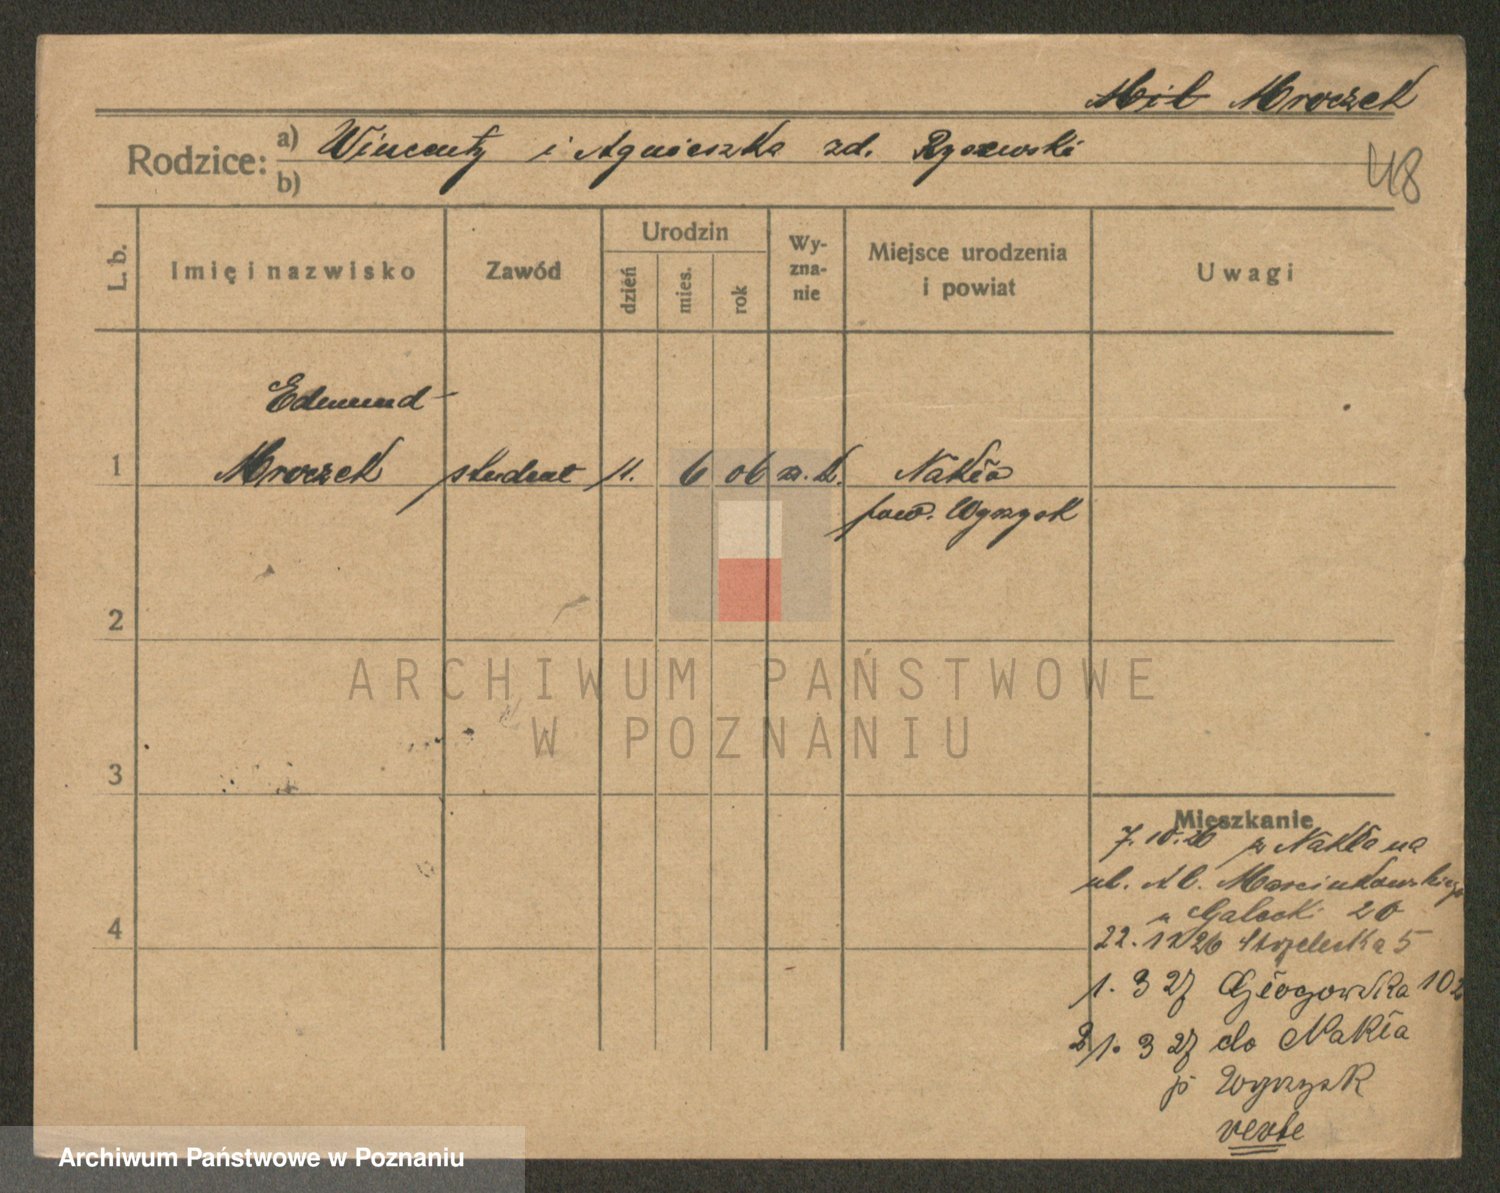 Mil Mroczek
Rodzice: a) Wincenty i Agnieszka zd. Ryszewski
b)
48
L. b.
Imię i nazwisko
Zawód
Urodzin
dzień
mies.
rok
Wy-
zna-
nie
Miejsce urodzenia
i powiat
Uwagi
Edmund
1 Mroczek student 11. 6 06 rz. k. Nakło
pow. Wyrzysk
2
ARCHIWUM PAŃSTWOWE
W POZNANIU
3
Mieszkanie
7.10.26 z Nakła na
ul. Al. Marcinkowskiego
u Galecki 26
4
22. 11 26 Strzelecka 5
1. 3 27 Głogowska 102
21. 3 27 do Nakła
p Wyrzysk
verte
Archiwum Państwowe w Poznaniu